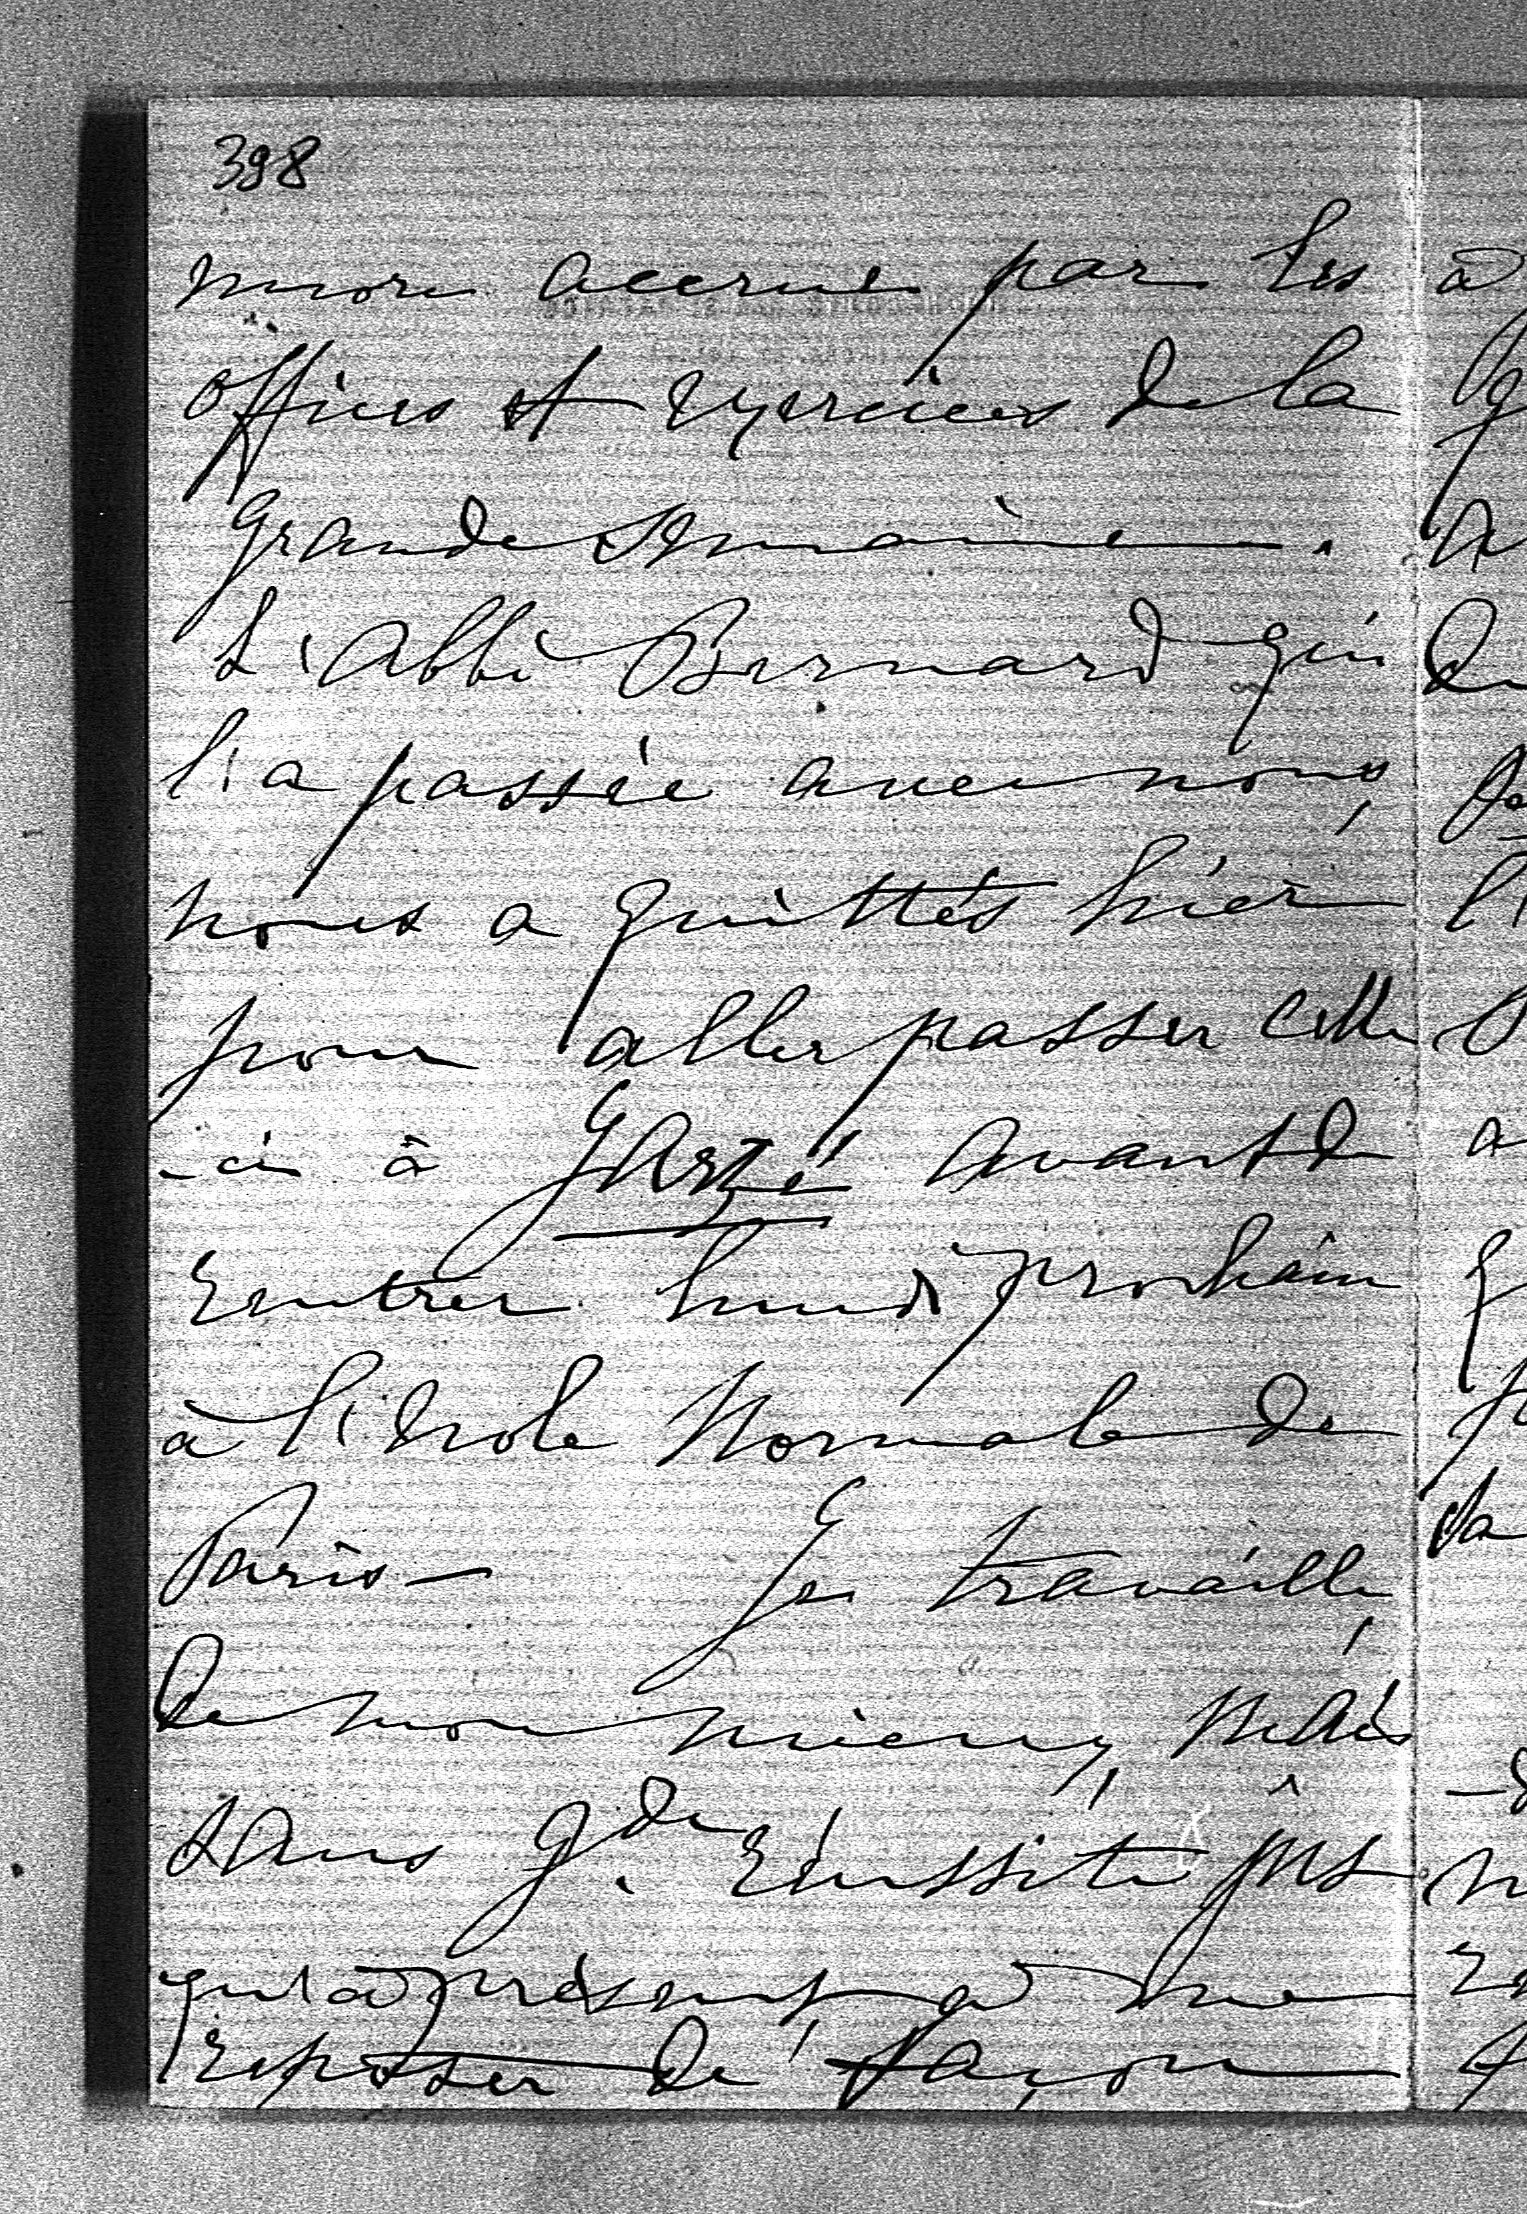 398
encore accrue par les
offices et exercices de la
grande semaine.
L'Abbé Bernard qui
l'a passée avec nous,
nous a quittés hier
pour aller passer celle
-ci à Jarzé avant de
rentrer lundi prochain
à l'École Normale de
Paris — Je travaille
de mon mieux, mais
sans gde réussite jus
qu'à présent, à me
reposer de façon